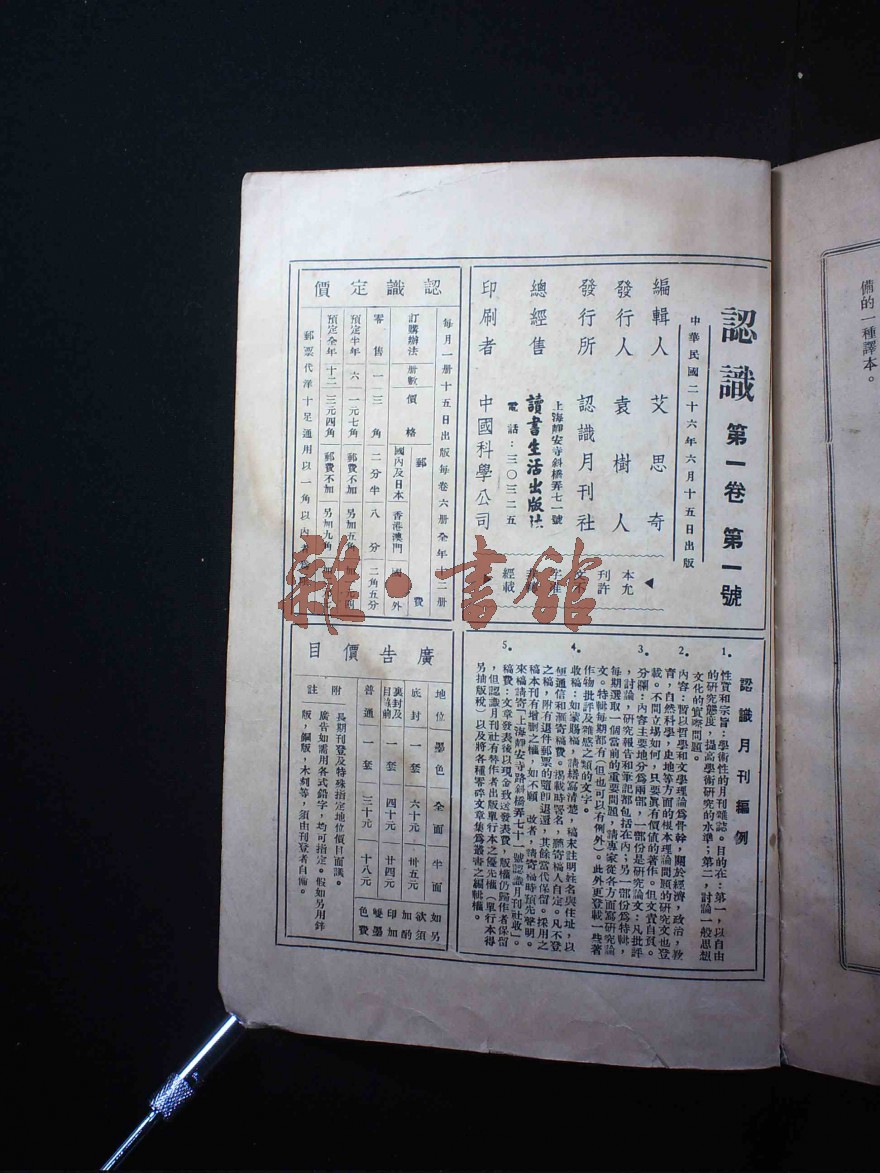 備的一種譯本。
認識 第一卷 第一號
中華民國二十六年六月十五日出版
編輯人 艾思奇
發行人 袁樹人
發行所 認識月刊社
總經售 讀書生活出版社
上海靜安寺斜橋弄七一號
電話：三〇三二五
印刷者 中國科學公司
本刊文字
非經
允許不准
轉載
認識定價
每月一册十五日出版每卷六册全年十二册
訂購辦法 册數 價格 郵費
國內及日本 香港澳門 國外
零售 一 三角 二分半 八分 二角五分
預定半年 六 一元七角 郵費不加 另加五角
預定全年 十二 三元四角 郵費不加 另加九角
郵票代洋十足通用以一角以內者
認識月刊編例
1. 性質和宗旨：學術性的月刊雜誌。目的在：第一，以自由
的研究態度，提高學術研究的水準；第二，討論一般思想
文化的實際問題。
2. 內容：暫以哲學和文學理論為骨幹，關於經濟，政治，教
育，自然科學，史地等方面的根本理論問題的研究文也登
載。不問立場如何，只要眞有價值的著作。但文責自負。
3. 分欄：內容主要地分為兩部，一部份是研究論文：凡批評
，討論，研究報告和筆記都包括在內；另一部份為特輯，
每期選取一個當前的重要問題，請專家從各方面寫研究論
文。特輯每期都有（但也可以有例外）。此外更登載一些著
作物批評及雜感之類的文字。
4. 收稿：如蒙賜稿，請繕寫清楚，稿末註明姓名與住址，以
便通信和滙寄稿費。揭載時署名，聽寄稿人自定。凡不登
之稿，附有退件郵票的隨卽退還，其餘當代保留。採用之
稿本刊有增刪之權，如不願改者，請寄稿時預先聲明。
來稿請寄「上海靜安寺路斜橋弄七十一號認識月刊社收」。
5. 稿費：文章發表後以現金致送發表費，版權仍歸作者保留
，但認識月刊社有替作者出版單行本之優先權（單行本得
另抽版稅），以及將各種零碎文章集為叢書之編輯權。
廣告價目
地位 墨色 全面 半面
底封 一套 六十元 卅五元
裏封及目錄前 一套 四十元 廿四元
普通 一套 三十元 十八元
如欲加印雙色
另須酌加墨費
附註
長期刊登及特殊指定地位價目面議。
廣告如需用各式鉛字，均可指定。假如另用鋅
版，銅版，木刻等，須由刊登者自備。
雜·書館